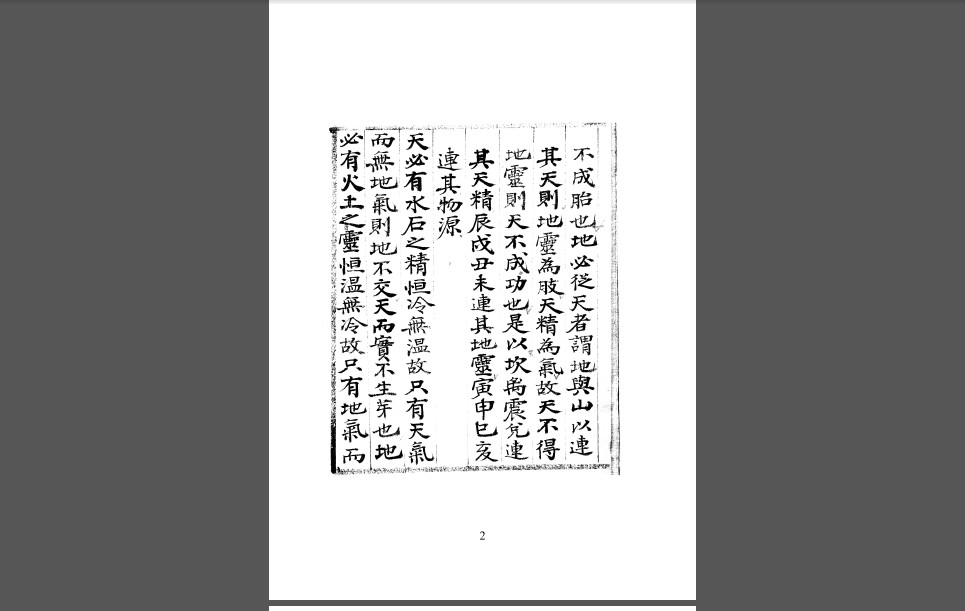 不成胎也地必從天者謂地與山以連
其天則地靈為肢天精為氣故天不得
地靈則天不成功也是以坎离震兌連
其天精辰戌丑未連其地靈寅申巳亥
連其物源
天必有水石之精恒冷無溫故只有天氣
而無地氣則地不交天而實不生芽也地
必有火土之靈恒溫無冷故只有地氣而
2